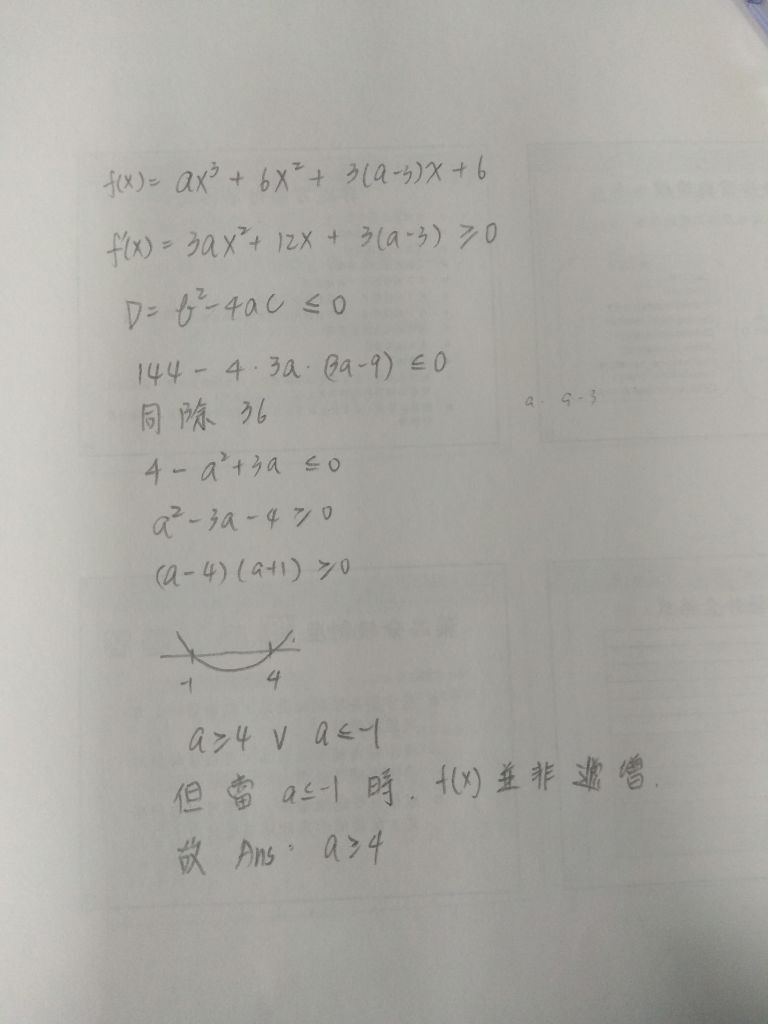 f(x) = ax³ + 6x² + 3(a-3)x + 6
f'(x) = 3ax² + 12x + 3(a-3) ≥ 0
D = b² - 4ac ≤ 0
144 - 4 · 3a · (3a-9) ≤ 0
同除 36
a · a-3
4 - a² + 3a ≤ 0
a² - 3a - 4 ≥ 0
(a-4)(a+1) ≥ 0
-1 4
a ≥ 4 ∨ a ≤ -1
但當 a ≤ -1 時. f(x) 並非遞增.
故 Ans: a ≥ 4